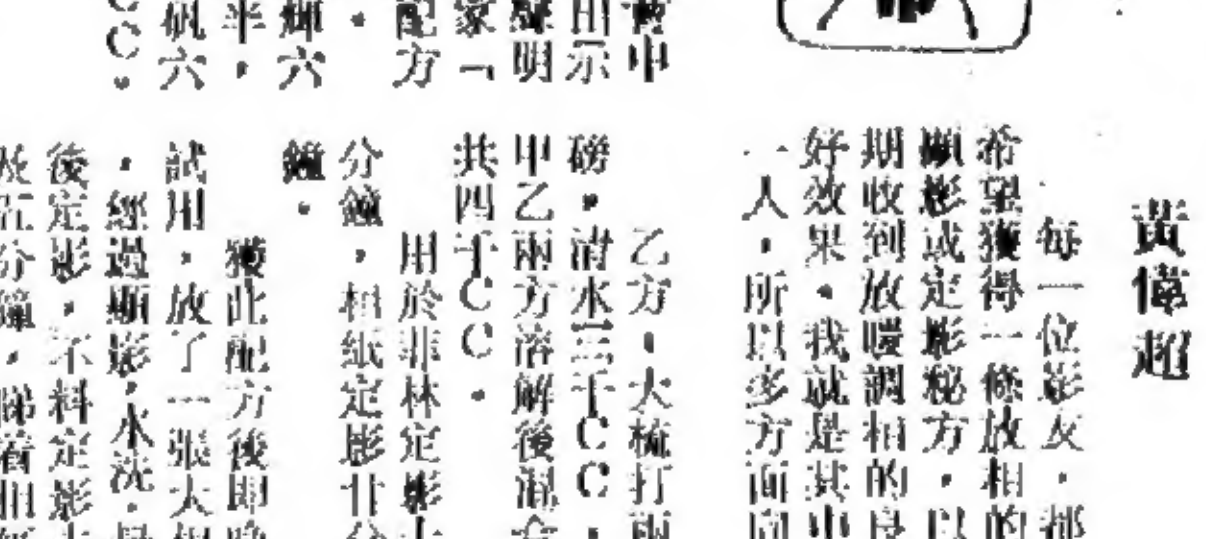 黃偉超
每一位影友，都
希望獲得一條放相的
顯影或定影秘方，以
期收到放暖調相的良
好效果。我就是其中
一人，所以多方面向
乙方：大梳打兩
磅，清水三千CC，
甲乙兩方溶解後混合
共四千CC。
用於菲林定影十
分鐘，相紙定影廿分
鐘。
獲此配方後即晚
試用，放了一張大相
，經過顯影，水洗，最
後定影，不料定影
分鐘，睇着相紙
明
示
家「
配方
。
六
半，
矾六
CC。